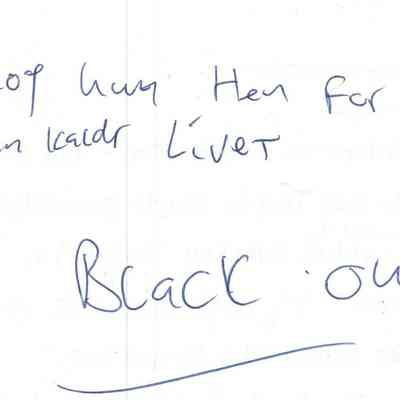 og hun Hen For
n kaldr Livet
Black ou